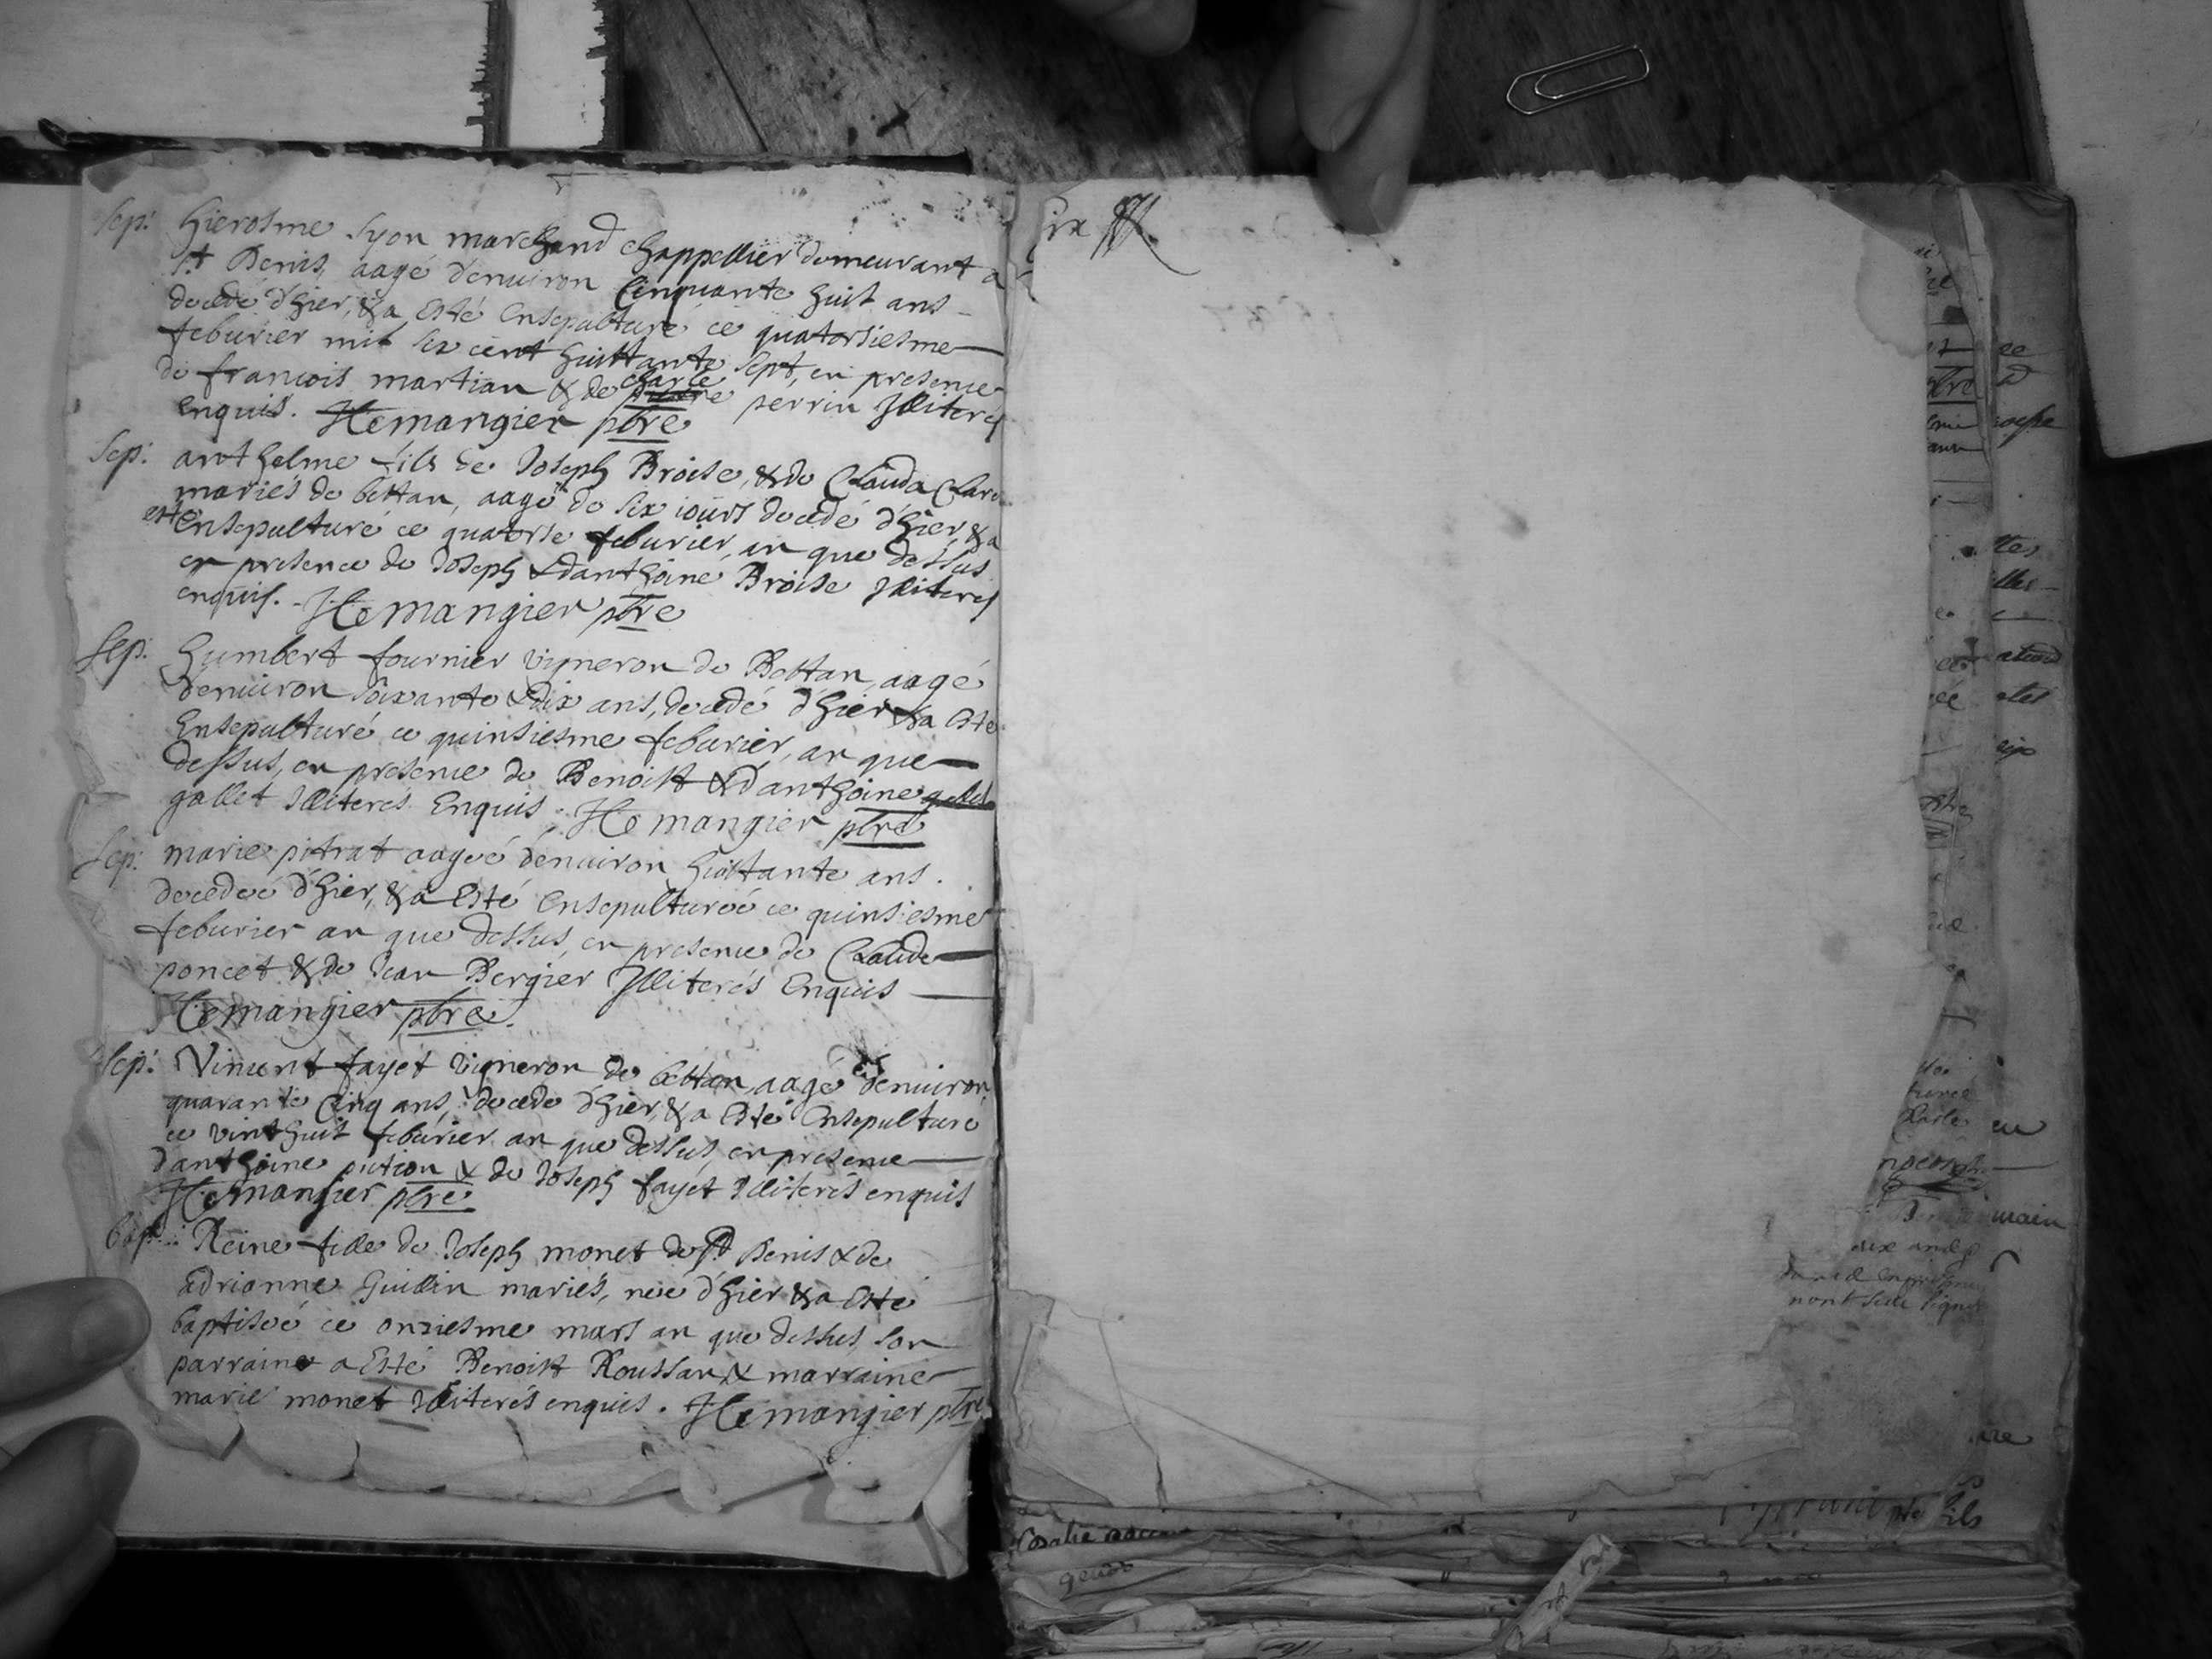 Sep: Hierosme Lyon marchand chappellier demeurant a
St Denis, aagé d'enuiron Cinquante huit ans
decedé d'hier, & a esté Ensepulturé ce quatorsiesme
feburier mil six cent huittante sept, en presence
de françois martian & de charle perrin Illiterés
enquis. Hemangier pbre
Sep: anthelme fils de Joseph Broise, & de Clauda Clare
mariés de bettan, aagé de six iours decedé d'hier, & a
esté Ensepulturé ce quatorse feburier, an que dessus
en presence de Joseph & d'anthoine Broise Illiterés
enquis. Hemangier pbre
Sep: humbert fournier vigneron de Bettan, aagé
d'enuiron soixante & dix ans, decedé d'hier & a esté
Ensepulturé ce quinsiesme feburier, an que
dessus, en presence de Benoist & d'anthoine
gallet Illiterés Enquis. Hemangier pbre
Sep: marie pitrat aageé d'enuiron huittante ans.
decedeé d'hier, & a esté Ensepultureé ce quinsiesme
feburier an que dessus, en presence de Claude
poncet & de Jean Bergier Illiterés Enquis
Hemangier pbre.
Sep: Vincent fayet vigneron de bettan, aagé d'enuiron
quarante Cinq ans, decedé d'hier, & a esté Ensepulturé
ce vint huit feburier an que dessus, en presence
d'anthoine & de Joseph fayet Illiterés enquis
Hemangier pbre
Bap: Reine fille de Joseph monet de St Denis & de
adrianne Guillin mariés, neé d'hier & a esté
baptiseé ce onziesme mars an que dessus, son
parrain a esté Benoist Roussan & marraine
marie monet Illiterés enquis. Hemangier pbre
Six